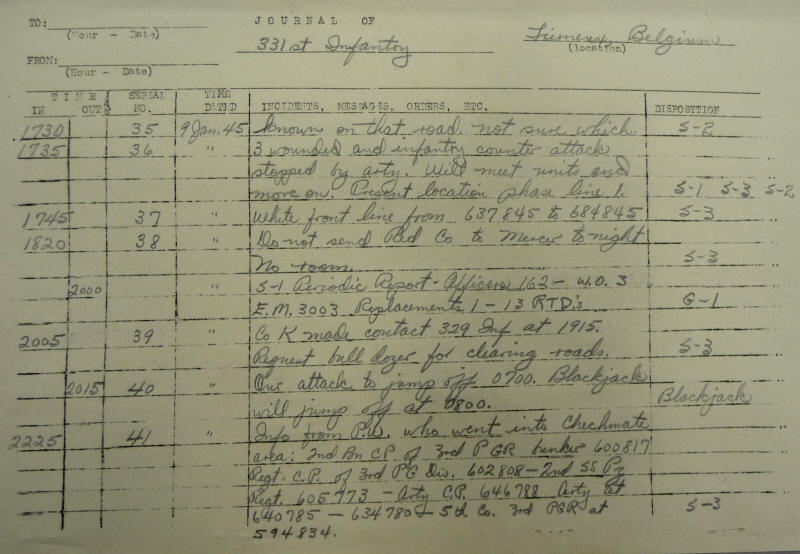 TO: JOURNAL OF
(Hour - Date) 331st Infantry Belgium
(location)
FROM:
(Hour - Date)
TIME SERIAL TIME
IN OUT NO. DATED INCIDENTS, MESSAGES, ORDERS, ETC. DISPOSITION
1730 35 9 Jan. 45 known on that road. not sure which S-2
1735 36 " 3 wounded and infantry counter attack
stopped by arty. Will meet units and
move on. Present location phase line 1. S-1 S-3 S-2
1745 37 " White front line from 637845 to 684845 S-3
1820 38 " Do not send Red Co to Mercer tonight
No room. S-3
2000 " S-1 Periodic Report - Officers 162 - W.O. 3
E.M. 3003 Replacements 1 - 13 RTD's G-1
2005 39 " Co K made contact 329 Inf at 1915.
Request bull dozer for clearing roads. S-3
2015 40 " Our attack to jump off 0700. Blackjack
will jump off at 0800. Blackjack
2225 41 " Info from P.W. who went into Checkmate
area: 2nd Bn CP of 3rd PGR bunker 600817
Regt. C.P. of 3rd PG Div. 602808 - 2nd SS Pz
Regt 605773 - Arty C.P. 646788 Arty at
640785 - 634780 - 5th Co. 3rd PGR at S-3
594834.